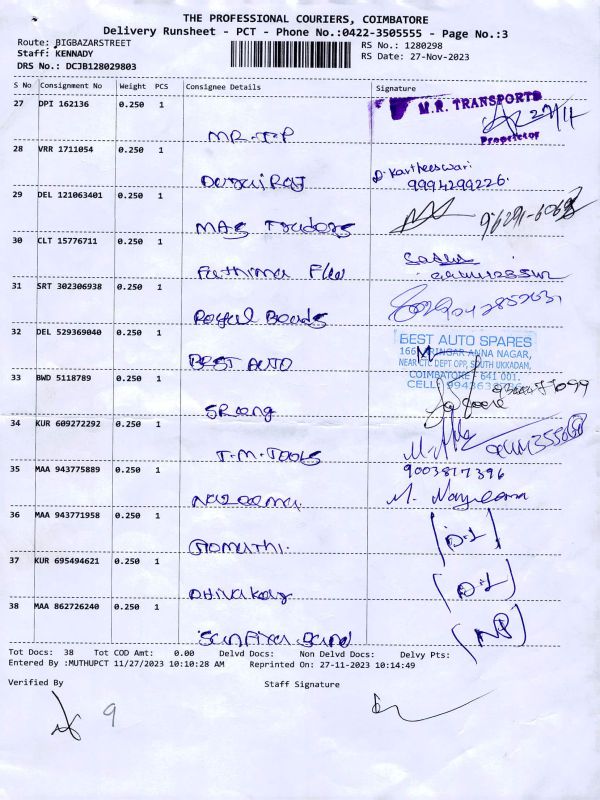 THE PROFESSIONAL COURIERS, COIMBATORE
Delivery Runsheet - PCT - Phone No.:0422-3505555 - Page No.:3
Route: BIGBAZARSTREET
RS No.: 1280298
Staff: KENNADY
RS Date: 27-Nov-2023
DRS No.: DCJB128029803
S No Consignment No Weight PCS Consignee Details Signature
27 DPI 162136 0.250 1
M.R. TRANSPORTS
27/11
Proprietor
MR.T.P
28 VRR 1711054 0.250 1
D. Kartheeswari
9994299226.
Durai Raj
29 DEL 121063401 0.250 1
MAS Traders
30 CLT 15776711 0.250 1
Fathima
31 SRT 302306938 0.250 1
Royal Beads
32 DEL 529369040 0.250 1
BEST AUTO SPARES
ANNA NAGAR,
NEAR CTC DEPT OPP, SOUTH UKKADAM,
COIMBATORE - 641 001.
CELL
BEST AUTO
33 BWD 5118789 0.250 1
34 KUR 609272292 0.250 1
T.M.TOOLS
35 MAA 943775889 0.250 1
9003817396
M. Nazeema
Nazeema
36 MAA 943771958 0.250 1
(D.L)
Gomathi.
37 KUR 695494621 0.250 1
(D.L)
Dhivakar
38 MAA 862726240 0.250 1
(NP)
Tot Docs: 38 Tot COD Amt: 0.00 Delvd Docs: Non Delvd Docs: Delvy Pts:
Entered By :MUTHUPCT 11/27/2023 10:10:28 AM Reprinted On: 27-11-2023 10:14:49
Verified By Staff Signature
9